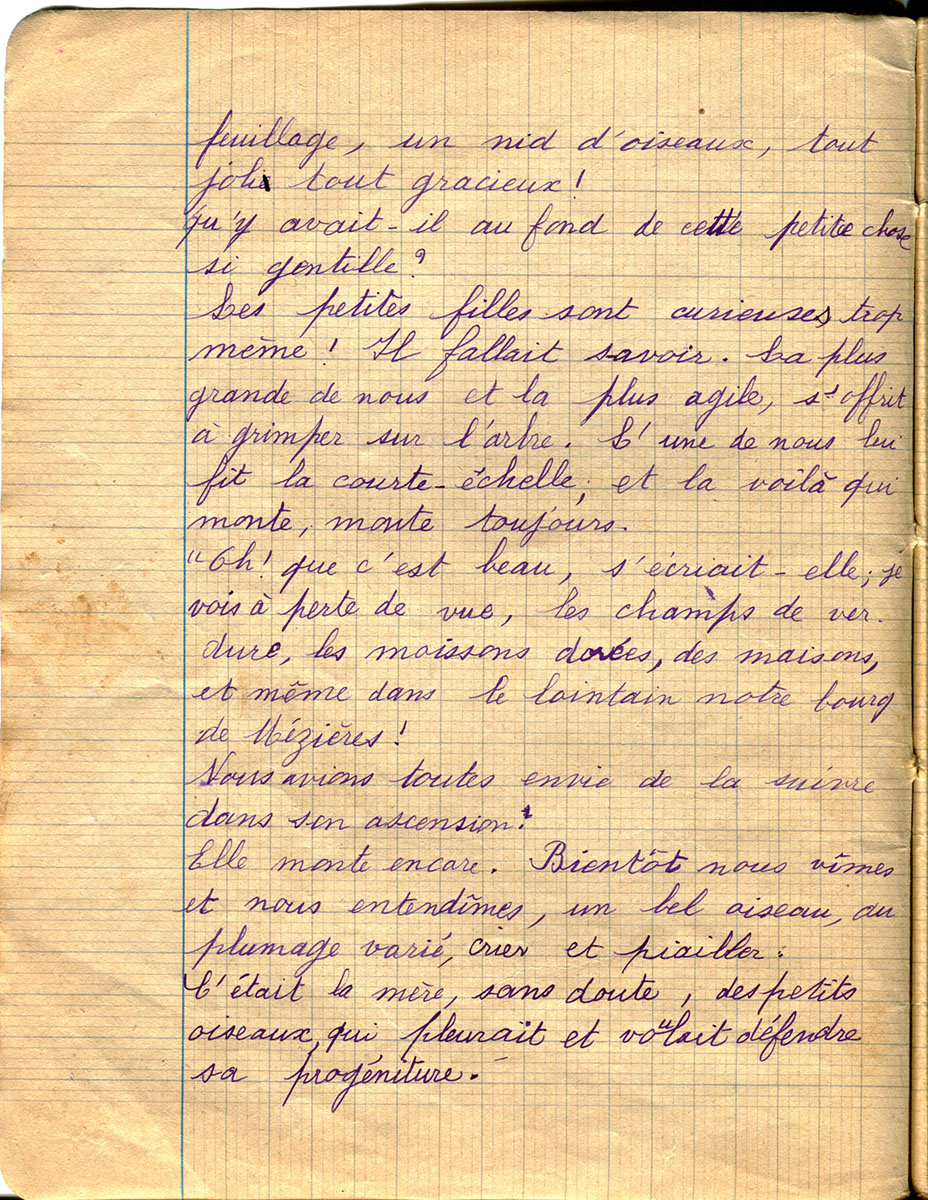 feuillage, un nid d'oiseaux, tout
joli tout gracieux!
Qu'y avait-il au fond de cette petite chose
si gentille?
Les petites filles sont curieuses, trop
même! Il fallait savoir. La plus
grande de nous et la plus agile, s'offrit
à grimper sur l'arbre. L'une de nous lui
fit la courte-échelle, et la voilà qui
monte, monte toujours.
"Oh! que c'est beau, s'écriait-elle; je
vois à perte de vue, les champs de ver-
dure, les moissons dorées, des maisons,
et même dans le lointain notre bourg
de Mézières!
Nous avions toutes envie de la suivre
dans son ascension!
Elle monte encore. Bientôt nous vîmes
et nous entendîmes, un bel oiseau, au
plumage varié, crier et piailler.
C'était la mère, sans doute, des petits
oiseaux, qui pleurait et voulait défendre
sa progéniture.